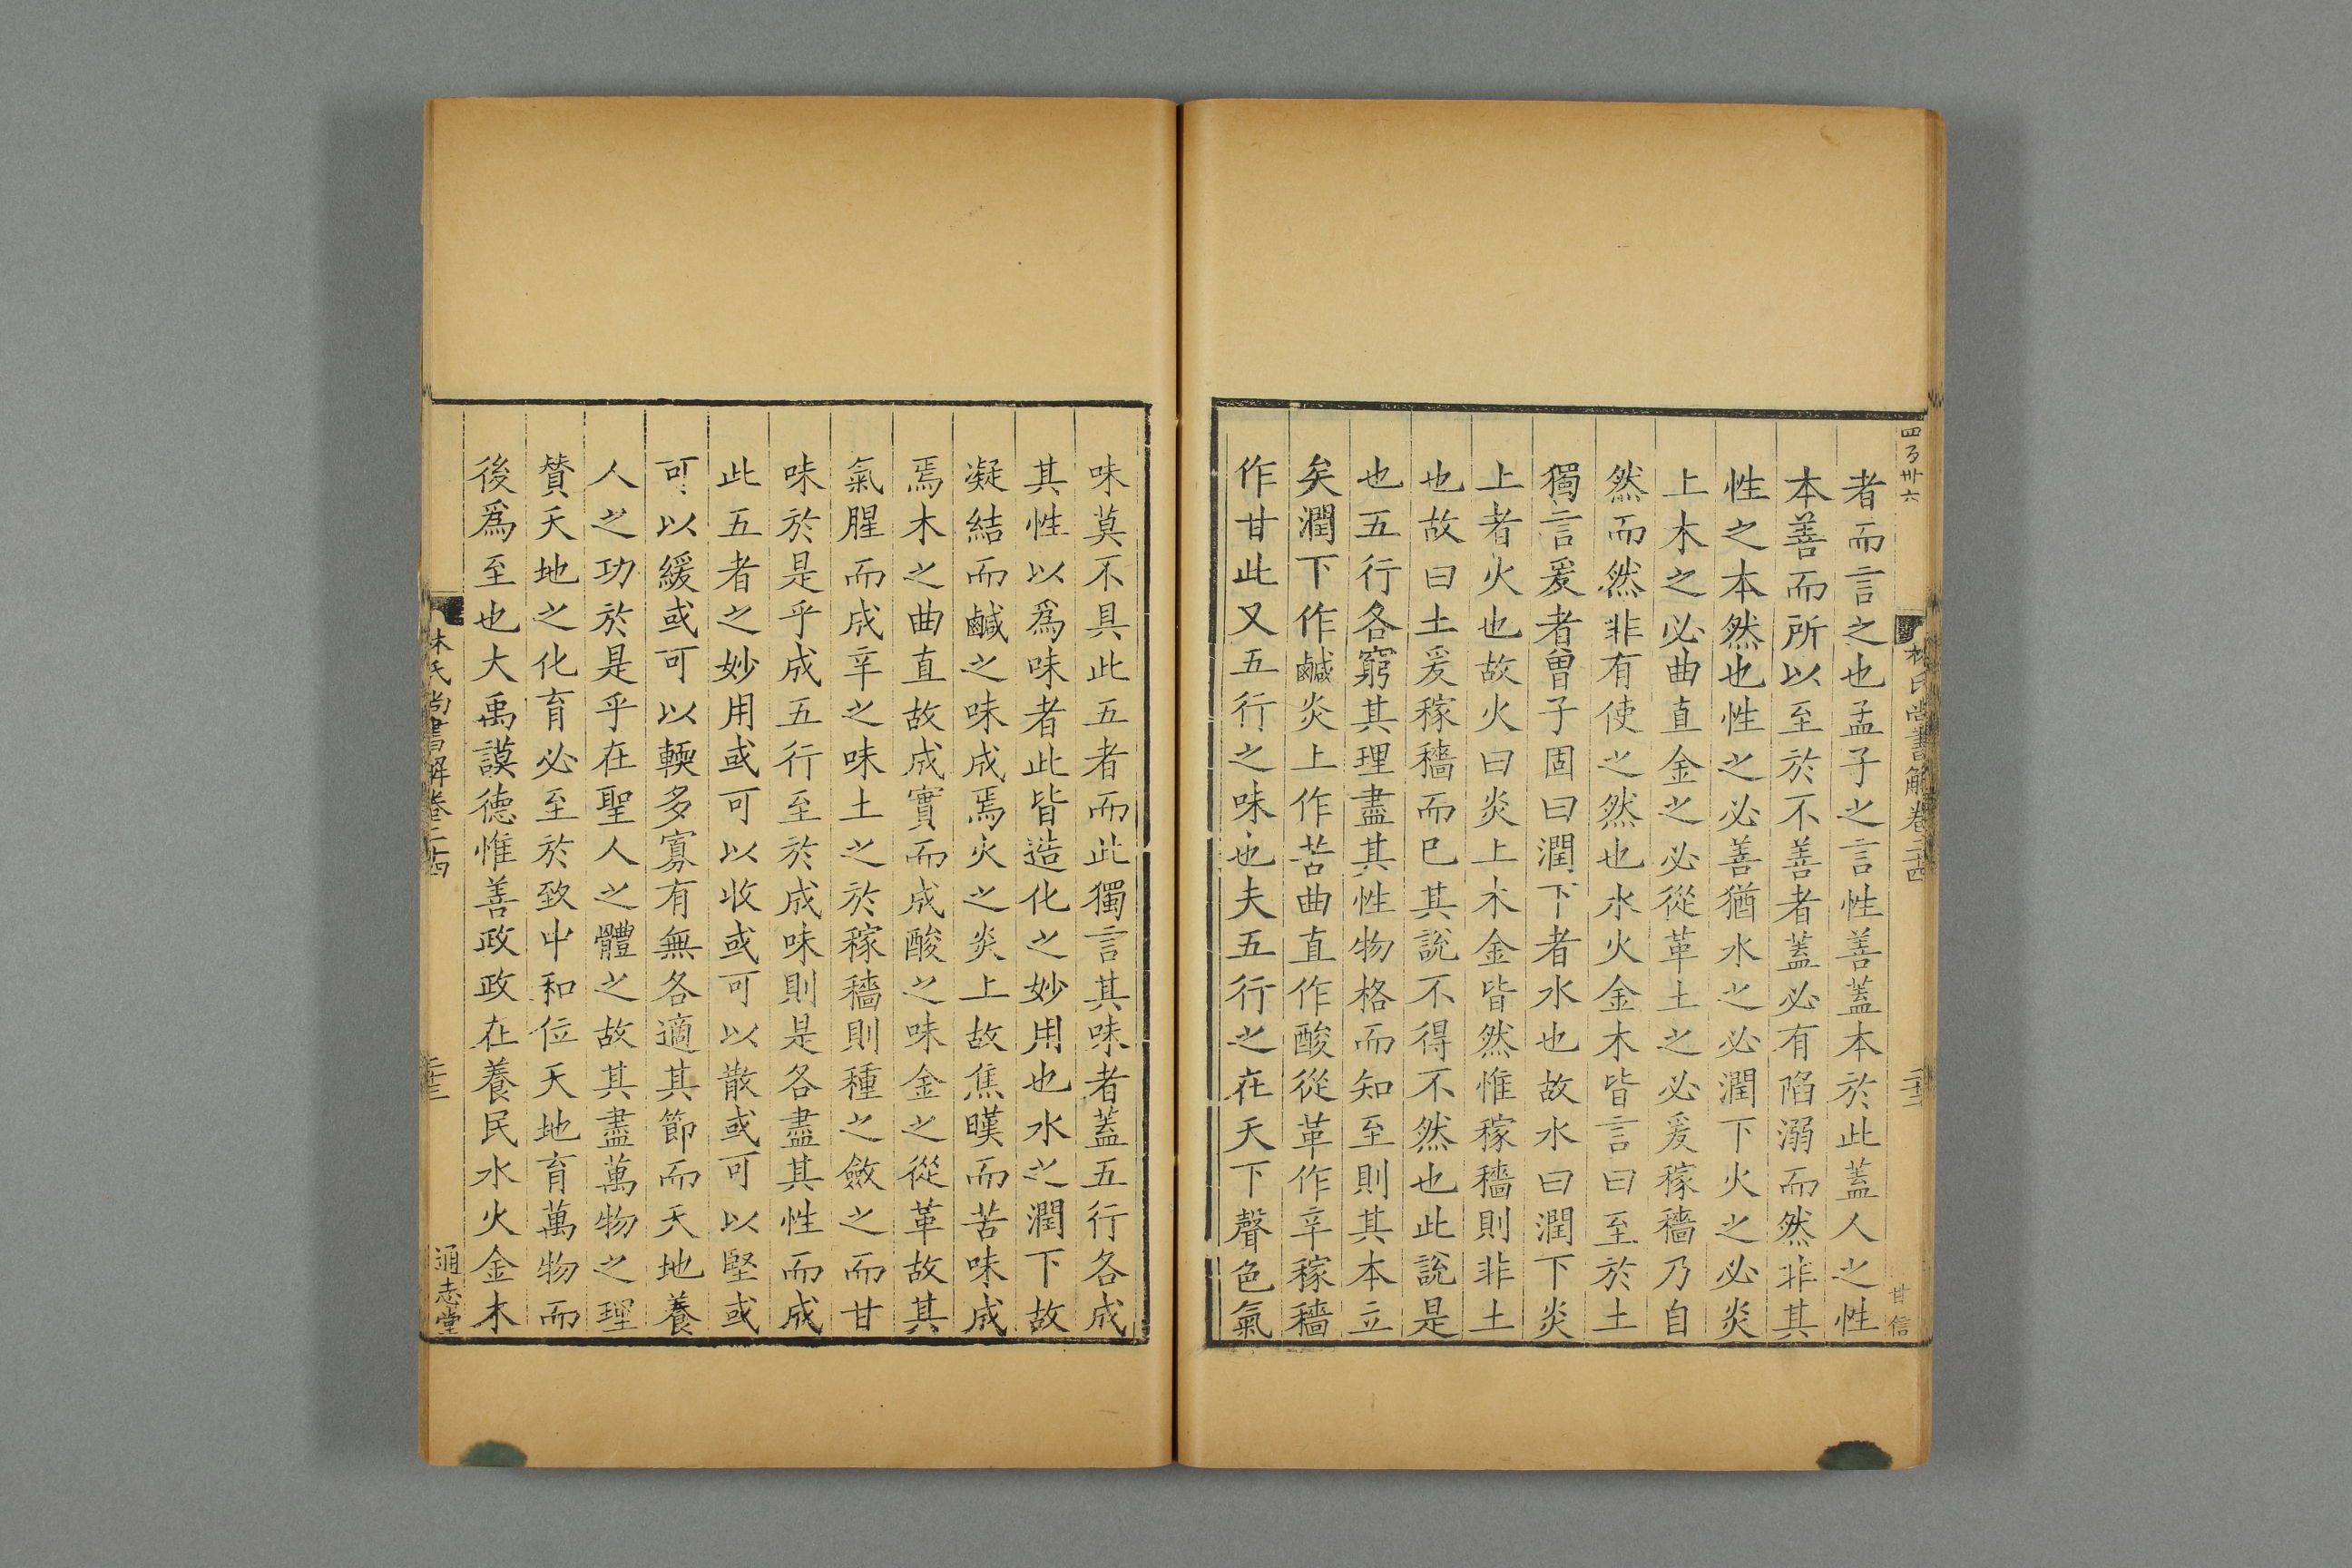 四百卅六
林氏尚書解卷二十四
甘信
者而言之也孟子之言性善蓋本於此蓋人之性
本善而所以至於不善者蓋必有陷溺而然非其
性之本然也性之必善猶水之必潤下火之必炎
上木之必曲直金之必從革土之必爰稼穡乃自
然而然非有使之然也水火金木皆言曰至於土
獨言爰者曾子固曰潤下者水也故水曰潤下炎
上者火也故火曰炎上木金皆然惟稼穡則非土
也故曰土爰稼穡而已其說不得不然也此說是
也五行各窮其理盡其性物格而知至則其本立
矣潤下作鹹炎上作苦曲直作酸從革作辛稼穡
作甘此又五行之味也夫五行之在天下聲色氣
味莫不具此五者而此獨言其味者蓋五行各成
其性以爲味者此皆造化之妙用也水之潤下故
凝結而鹹之味成焉火之炎上故焦暵而苦味成
焉木之曲直故成實而成酸之味金之從革故其
氣腥而成辛之味土之於稼穡則種之斂之而甘
味於是乎成五行至於成味則是各盡其性而成
此五者之妙用或可以收或可以散或可以堅或
可以緩或可以輭多寡有無各適其節而天地養
人之功於是乎在聖人之體之故其盡萬物之理
贊天地之化育必至於致中和位天地育萬物而
後爲至也大禹謨德惟善政政在養民水火金木
林氏尚書解卷二十四
通志堂